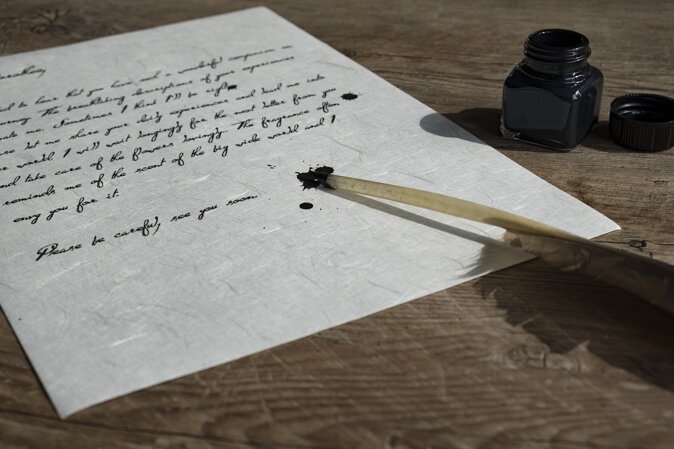 to hear that you have such a wonderful companion on
The breathtaking descriptions of your experiences
me. Sometimes I think I'll be right
let me share your daily experiences and lead me into
world! I will wait longingly for the next letter from you
and take care of the flowers lovingly. The fragrance often
reminds me of the scent of the big wide world and I
envy you for it.
Please be careful, see you soon.